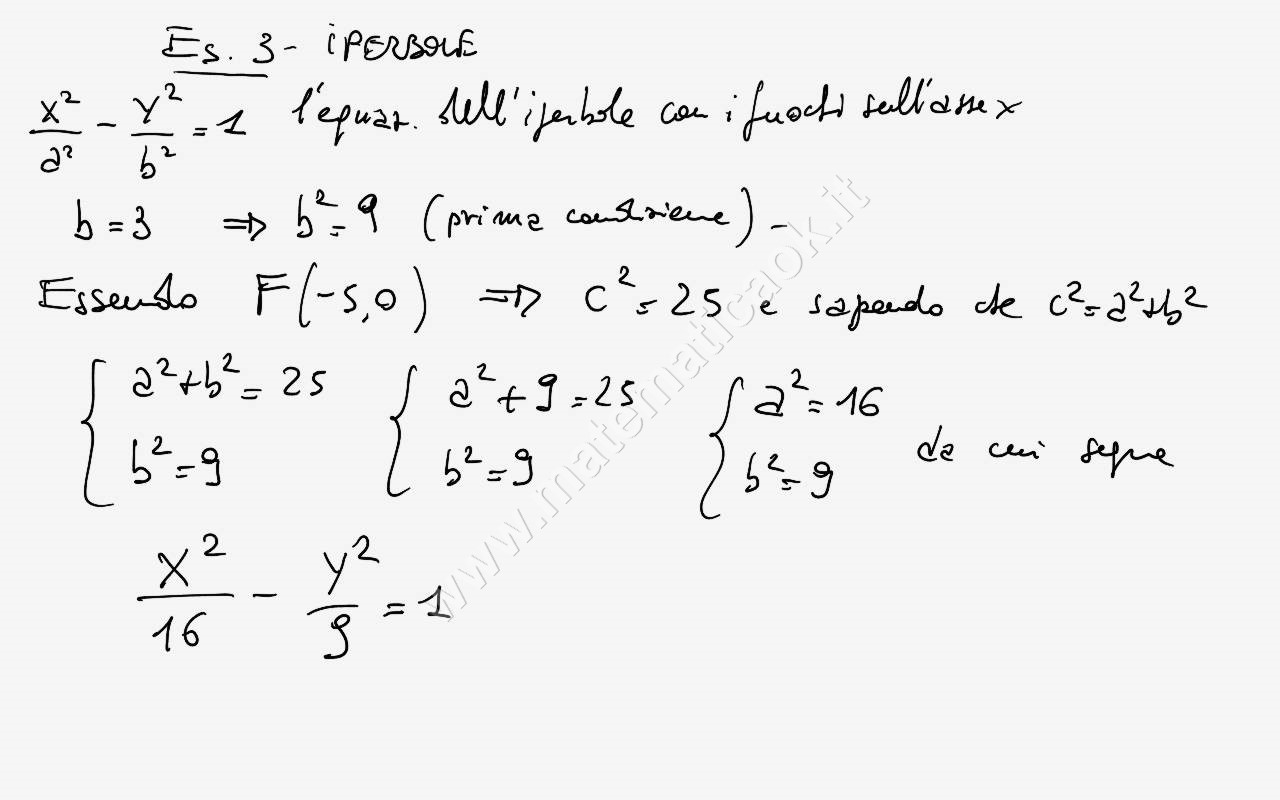 Es. 3 - iPERBOLE
x²/a² - y²/b² = 1 l'equaz. dell'iperbole con i fuochi sull'asse x
b = 3 ⇒ b² = 9 (prima condizione) -
Essendo F(-5,0) ⇒ c² = 25 e sapendo che c² = a² + b²
{ a² + b² = 25 { a² + 9 = 25 { a² = 16
b² = 9 b² = 9 b² = 9 da cui segue
x²/16 - y²/9 = 1
www.matematicaok.it